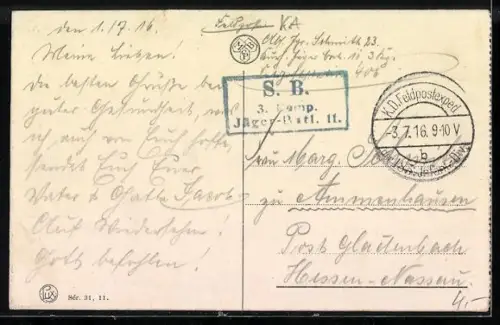 den 1.17.16.
Meine Lieben!
die besten Grüße bei
guter Gesundheit, was
ich auch von Euch hoffe,
sendet Euch Euer
Vater & Gatte Jacob
Auf Wiedersehn!
Gott befohlen!
Feldpost KA
Jgr. Schmitt 23.
406
S. B.
3. Komp.
Jäger-Batl. 11.
K.D. Feldpostexped.
-3.7.16. 9-10 V
b
Frau Marg.
zu Ammenhausen
Post Gladenbach
Hessen-Nassau.
4,-
Sér. 31, 11.